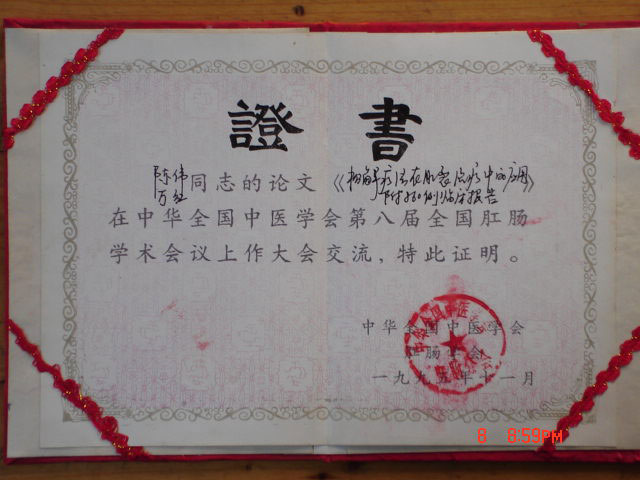 證書
陈伟
万红 同志的论文《 疗法在肛 治疗中的应用》
附 例临床报告
在中华全国中医学会第八届全国肛肠
学术会议上作大会交流，特此证明。
中华全国中医学会
肛肠学会
一九九五年十一月
8 8:59PM